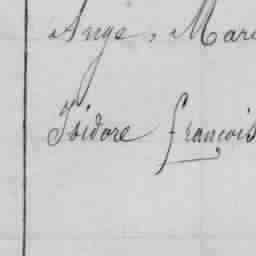 Ange, Mari
Isidore françois